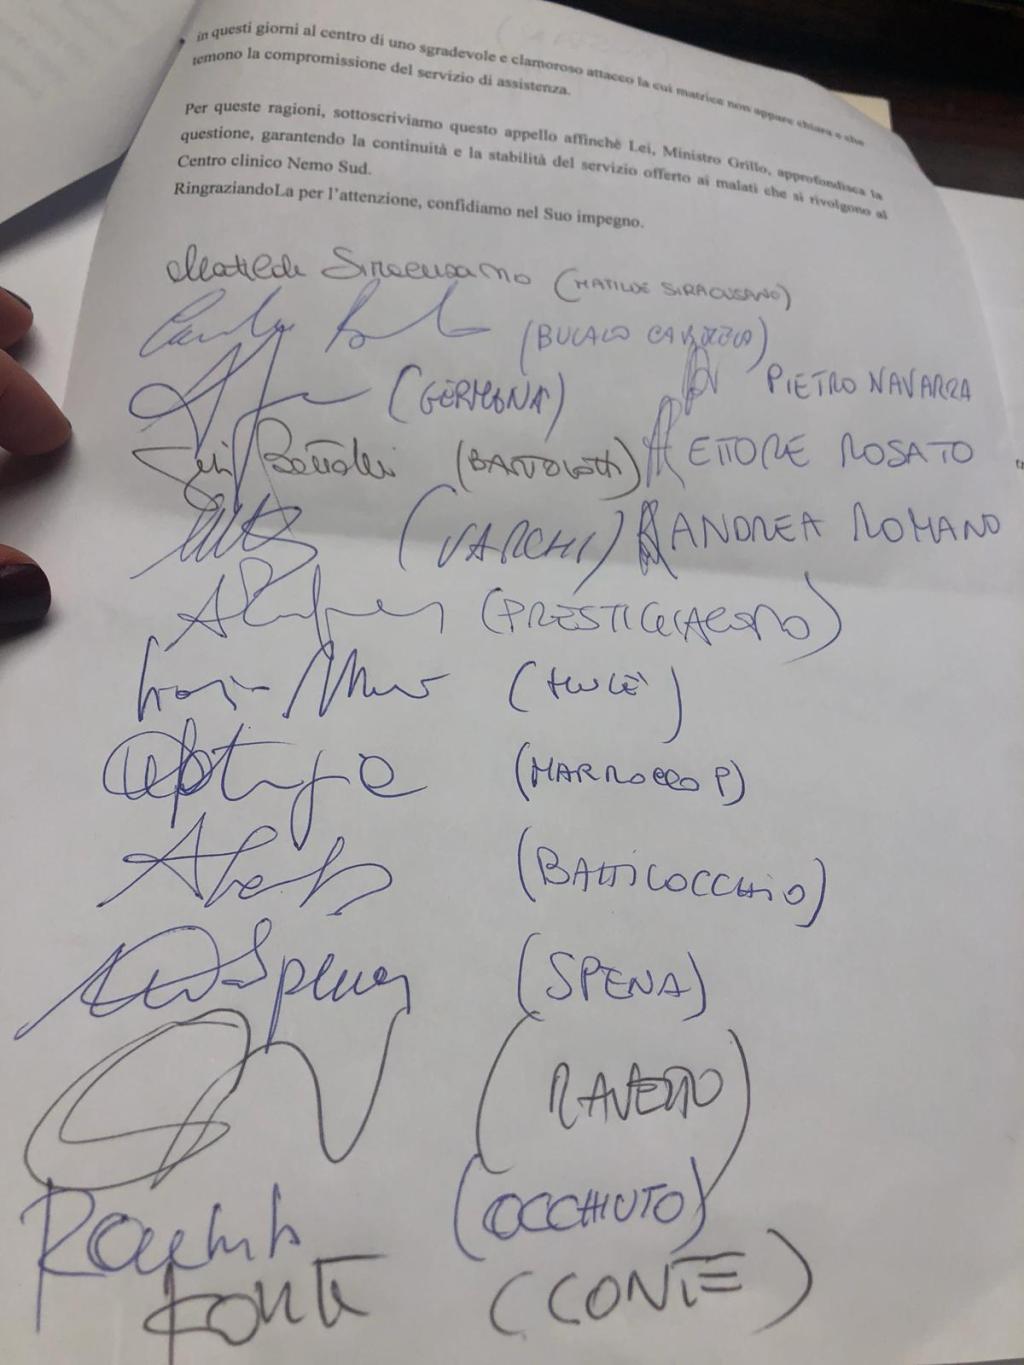 in questi giorni al centro di uno sgradevole e clamoroso attacco la cui matrice non appare chiara e che
temono la compromissione del servizio di assistenza.
Per queste ragioni, sottoscriviamo questo appello affinchè Lei, Ministro Grillo, approfondisca la
questione, garantendo la continuità e la stabilità del servizio offerto ai malati che si rivolgono al
Centro clinico Nemo Sud.
RingraziandoLa per l'attenzione, confidiamo nel Suo impegno.
Matilde Siracusano (MATILDE SIRACUSANO)
(BUCALO CARMELA)
(GERMANA) PIETRO NAVARRA
(BARTOLOTTI) ETTORE ROSATO
(VARCHI) ANDREA ROMANO
(PRESTIGIACOMO)
(MULÈ)
(MARROCCO P)
(BATTILOCCHIO)
Spena (SPENA)
(RAVETTO)
(OCCHIUTO)
CONTE (CONTE)